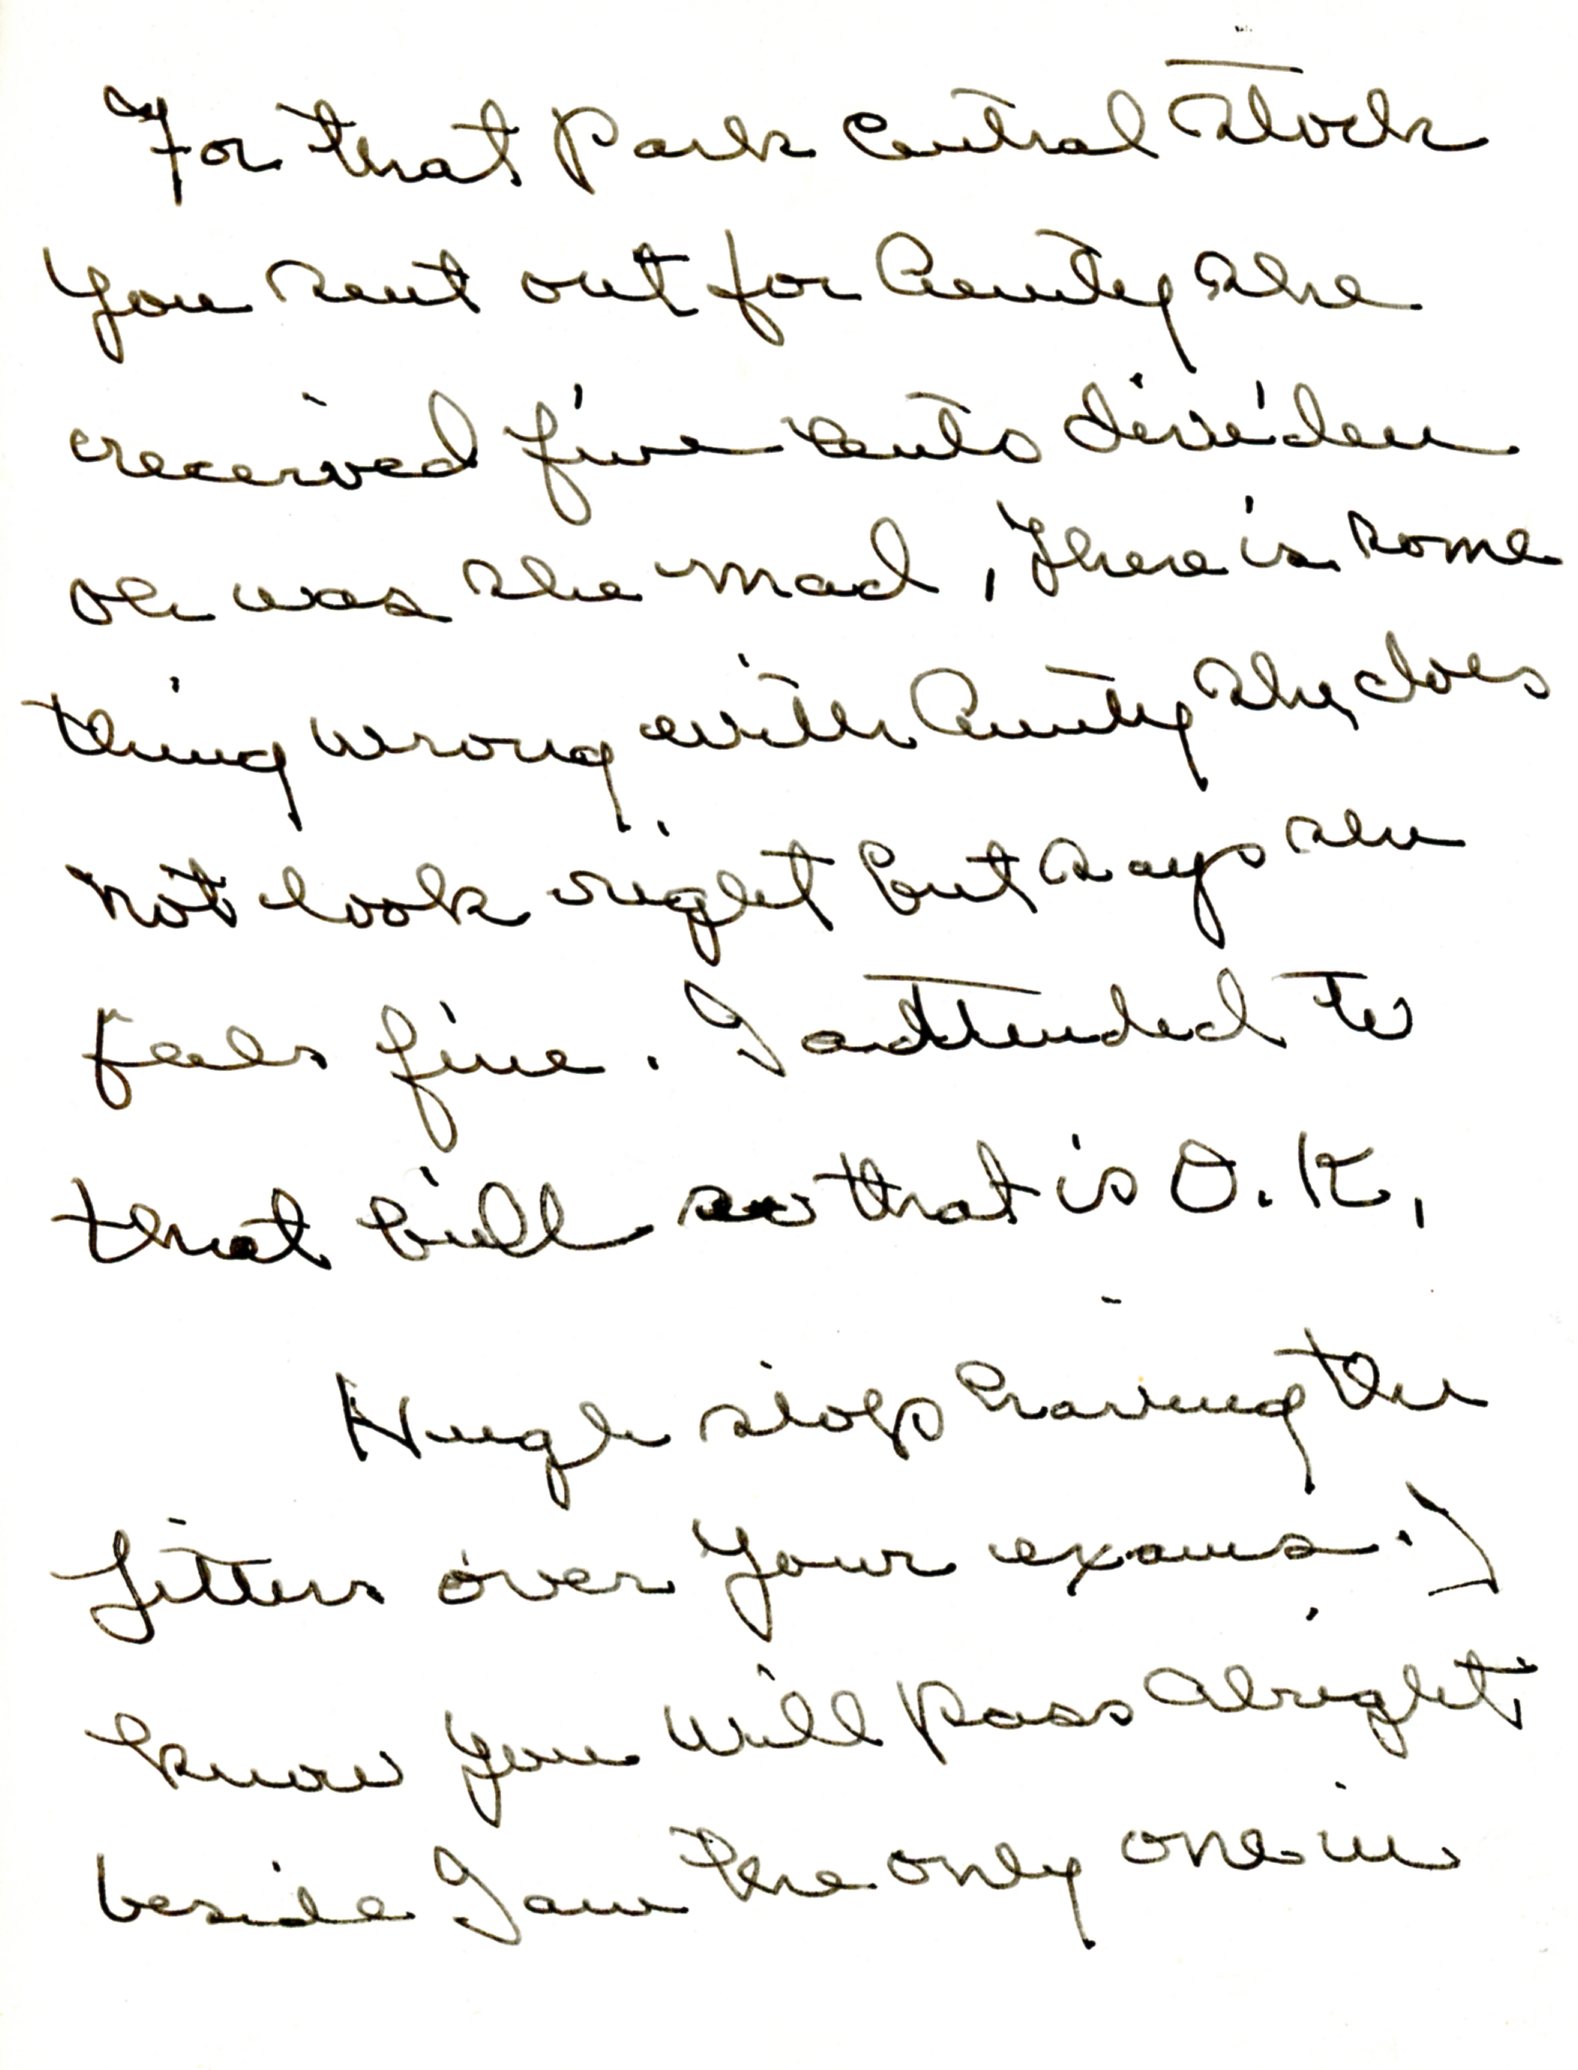 For that Park Central Stock
you sent out for Aunty she
received five cents dividen
oh was she mad, There is some
thing wrong with Aunty she does
not look right but says she
feels fine. I attended to
that bill so that is O.K.
Hugh stop having the
jitters over your exams. I
know you will pass alright
beside I am the only one in